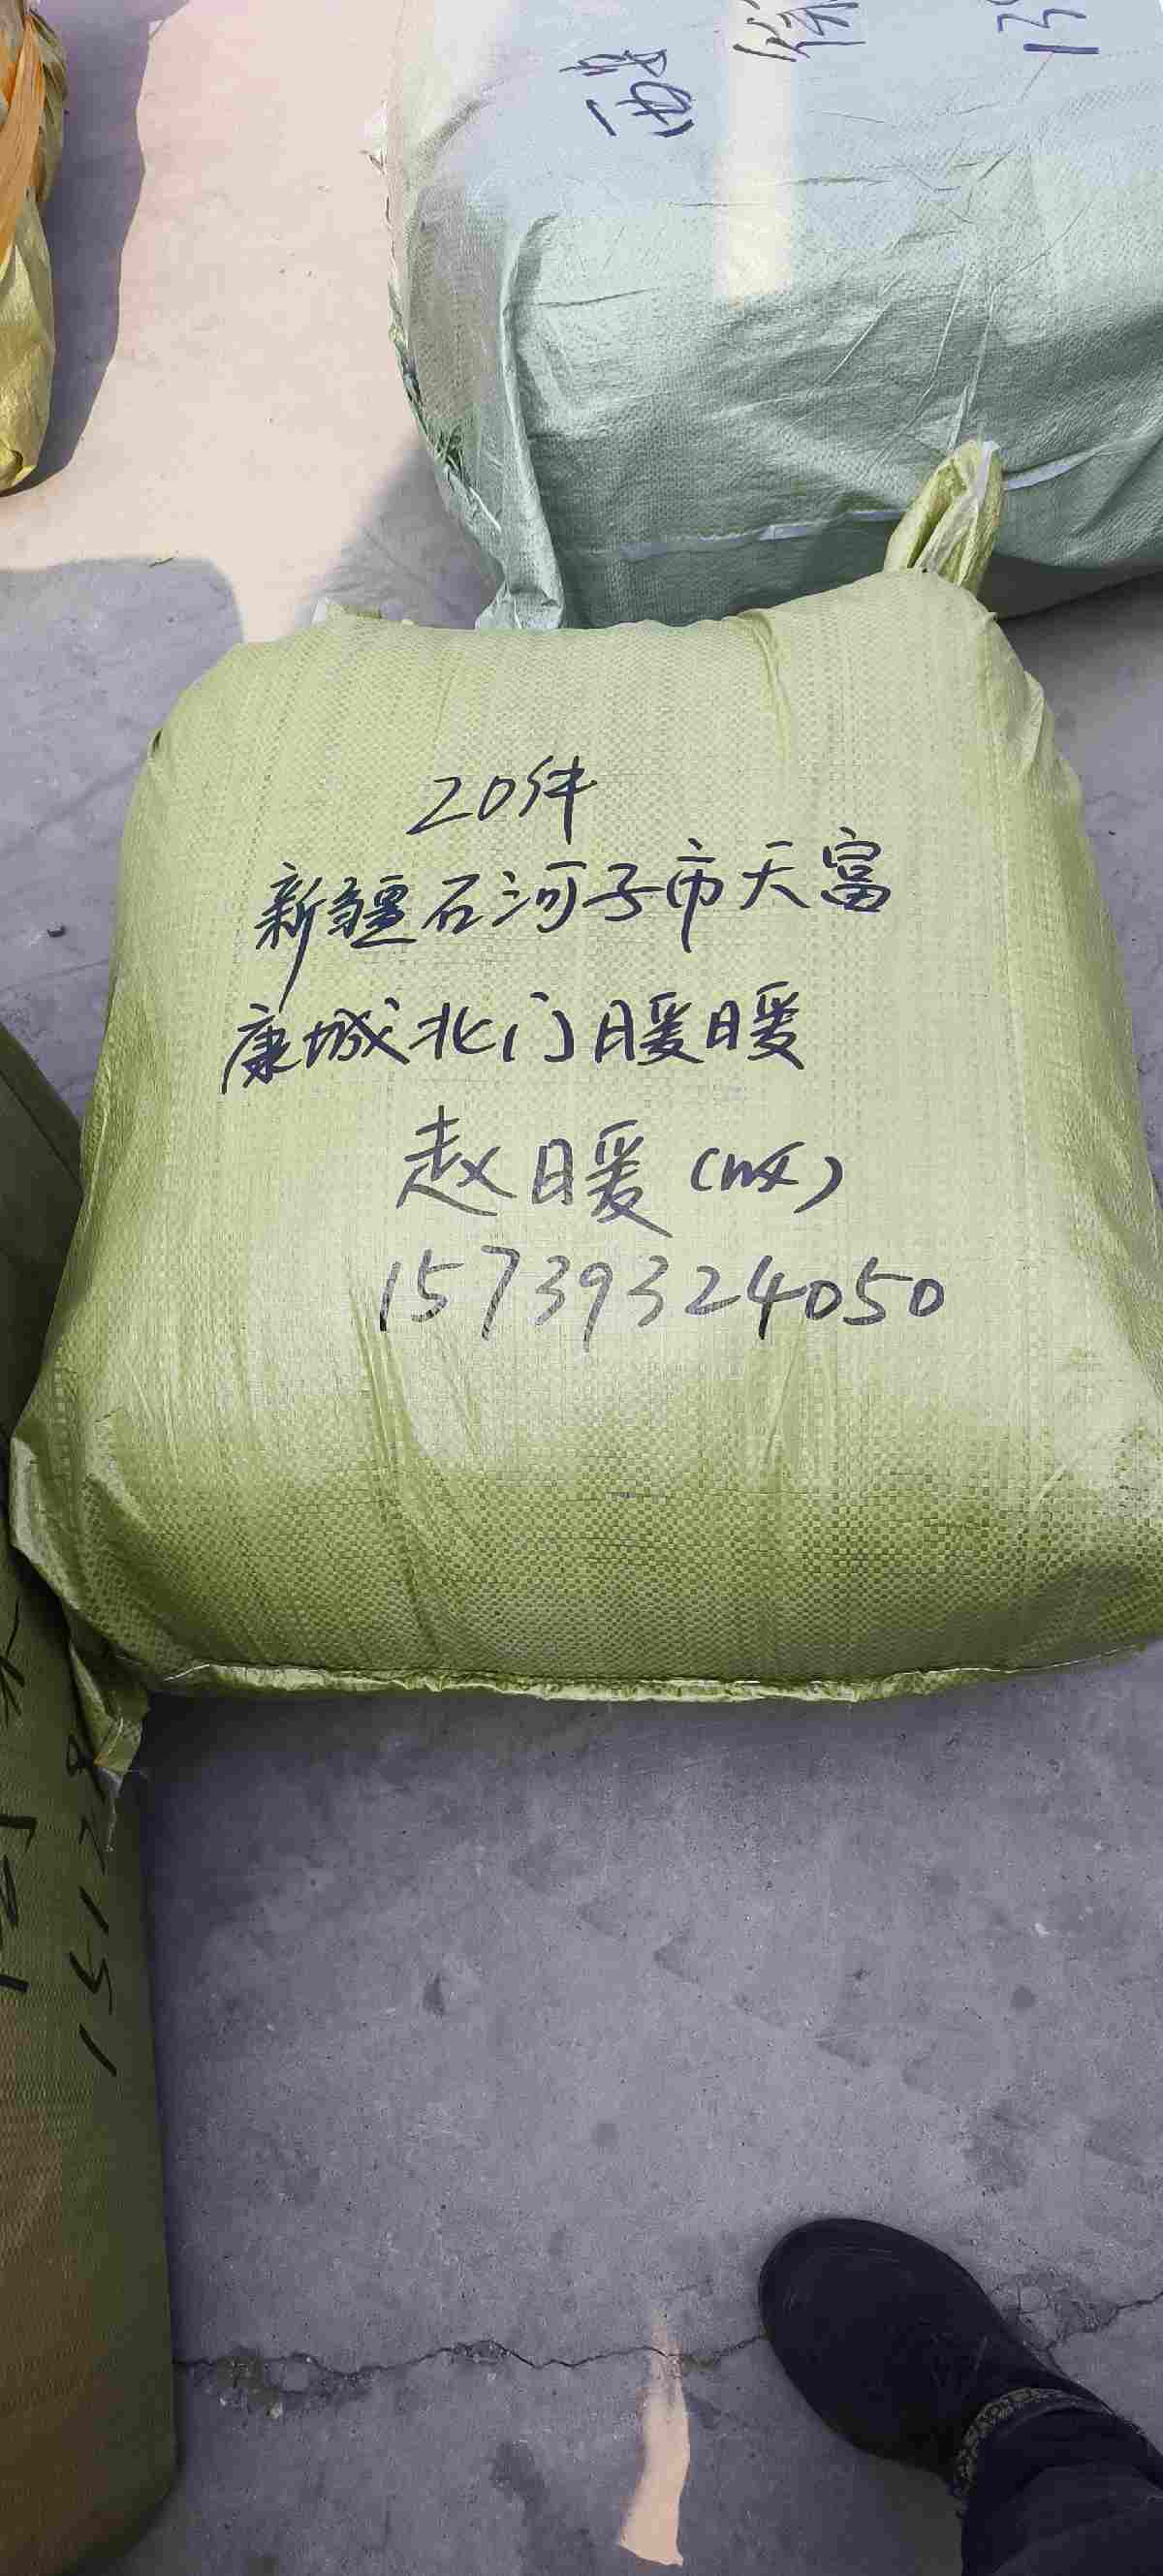 20件
新疆石河子市天富
康城北门暖暖
赵暖(收)
15739324050